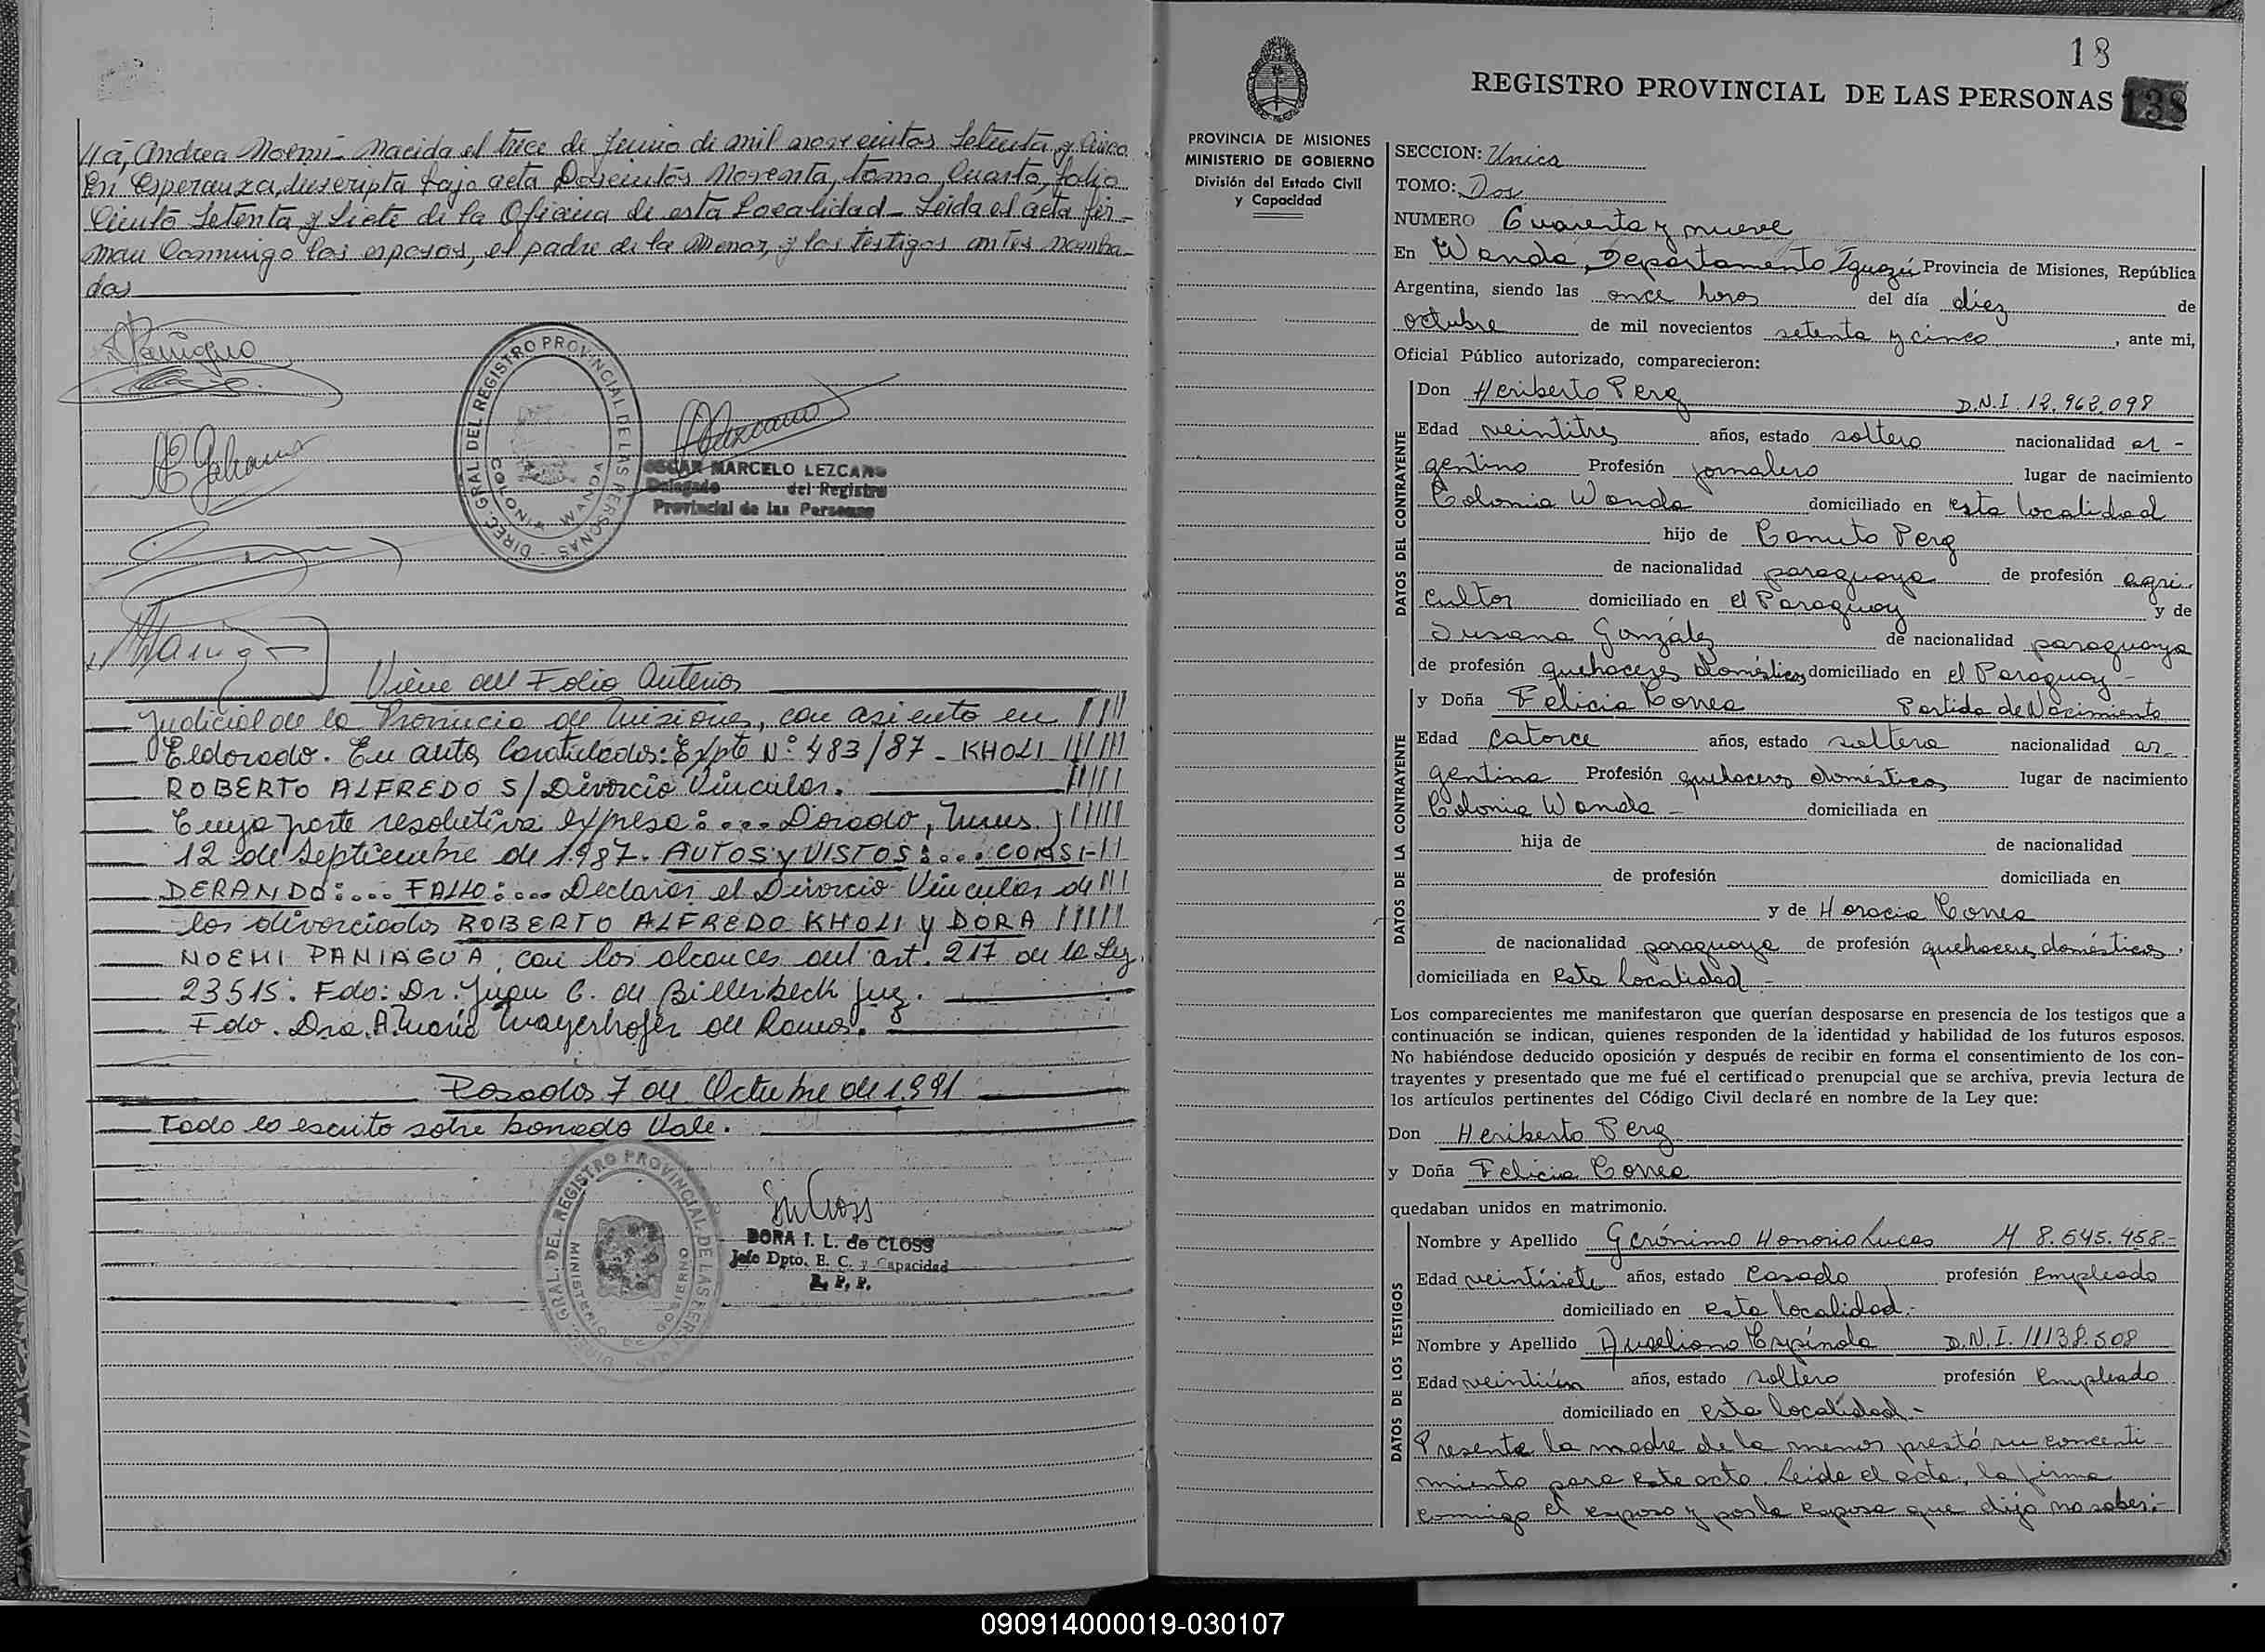 //a, Andrea Noemi - Nacida el trece de Junio de mil novecientos Setenta y Cinco
En Esperanza, Inscripta bajo acta Doscientos Noventa, tomo Cuarto, folio
Ciento Setenta y Siete de la Oficina de esta Localidad - Leida el acta fir-
man Conmigo los esposos, el padre de la Menor, y los testigos antes nombra-
dos
DIREC. GRAL. DEL REGISTRO PROVINCIAL DE LAS PERSONAS
COLONIA WANDA
OSCAR MARCELO LEZCANO
Delegado del Registro
Provincial de las Personas
Viene del Folio Anterior
Judicial de la Provincia de Misiones, con asiento en ////
Eldorado. En autos Caratulados: Expte Nº 483/87 - KHOLI //////
ROBERTO ALFREDO S/ Divorcio Vincular. /////
Cuya parte resolutiva expresa: ... Dorado, Mnes. /////
12 de Septiembre de 1.987. AUTOS y VISTOS: ... CONSI-//
DERANDO: ... FALLO: ... Declarar el Divorcio Vincular de ///
los divorciados ROBERTO ALFREDO KHOLI y DORA /////
NOEMI PANIAGUA, con los alcances del art. 217 de la Ley
23515. Fdo: Dr. Juan C. de Billerbeck Juez.
Fdo. Dra. A. María Mayerhofer de Ramos.
Posadas 7 de Octubre de 1.991
Todo lo escrito sobre borrado Vale.
DIREC. GRAL. DEL REGISTRO PROVINCIAL DE LAS PERSONAS
MINISTERIO DE GOBIERNO
DORA I. L. de CLOSS
Jefe Dpto. E. C. y Capacidad
R. P. P.
18
REGISTRO PROVINCIAL DE LAS PERSONAS 138
PROVINCIA DE MISIONES
MINISTERIO DE GOBIERNO
División del Estado Civil
y Capacidad
SECCION: Unica
TOMO: Dos
NUMERO Cuarenta y nueve
En Wanda, Departamento Iguazú Provincia de Misiones, República
Argentina, siendo las once horas del día diez de
octubre de mil novecientos setenta y cinco, ante mi,
Oficial Público autorizado, comparecieron:
DATOS DEL CONTRAYENTE
Don Heriberto Perg D.N.I. 12.962.098
Edad veintitres años, estado soltero nacionalidad ar-
gentino Profesión jornalero lugar de nacimiento
Colonia Wanda domiciliado en esta localidad
hijo de Canuto Perg
de nacionalidad paraguaya de profesión agri-
cultor domiciliado en el Paraguay y de
Susana González de nacionalidad paraguaya
de profesión quehaceres domésticos domiciliado en el Paraguay -
DATOS DE LA CONTRAYENTE
y Doña Felicia Correa Partida de Nacimiento
Edad catorce años, estado soltera nacionalidad ar-
gentina Profesión quehaceres domésticos lugar de nacimiento
Colonia Wanda - domiciliada en
hija de de nacionalidad
de profesión domiciliada en
y de Horacia Correa
de nacionalidad paraguaya de profesión quehaceres domésticos,
domiciliada en esta localidad -
Los comparecientes me manifestaron que querían desposarse en presencia de los testigos que a
continuación se indican, quienes responden de la identidad y habilidad de los futuros esposos.
No habiéndose deducido oposición y después de recibir en forma el consentimiento de los con-
trayentes y presentado que me fué el certificado prenupcial que se archiva, previa lectura de
los artículos pertinentes del Código Civil declaré en nombre de la Ley que:
Don Heriberto Perg
y Doña Felicia Correa
quedaban unidos en matrimonio.
DATOS DE LOS TESTIGOS
Nombre y Apellido Gerónimo Honorio Luces M 8.645.458.-
Edad veintisiete años, estado Casado profesión empleado
domiciliado en esta localidad.-
Nombre y Apellido Aureliano Espínola D.N.I. 11138.508
Edad veintiún años, estado soltero profesión Empleado
domiciliado en esta localidad -
Presente la madre de la menor prestó su concenti
miento para este acto. Leida el acta, la firma
conmigo el esposo y por la esposa que dijo no saber:-
090914000019-030107